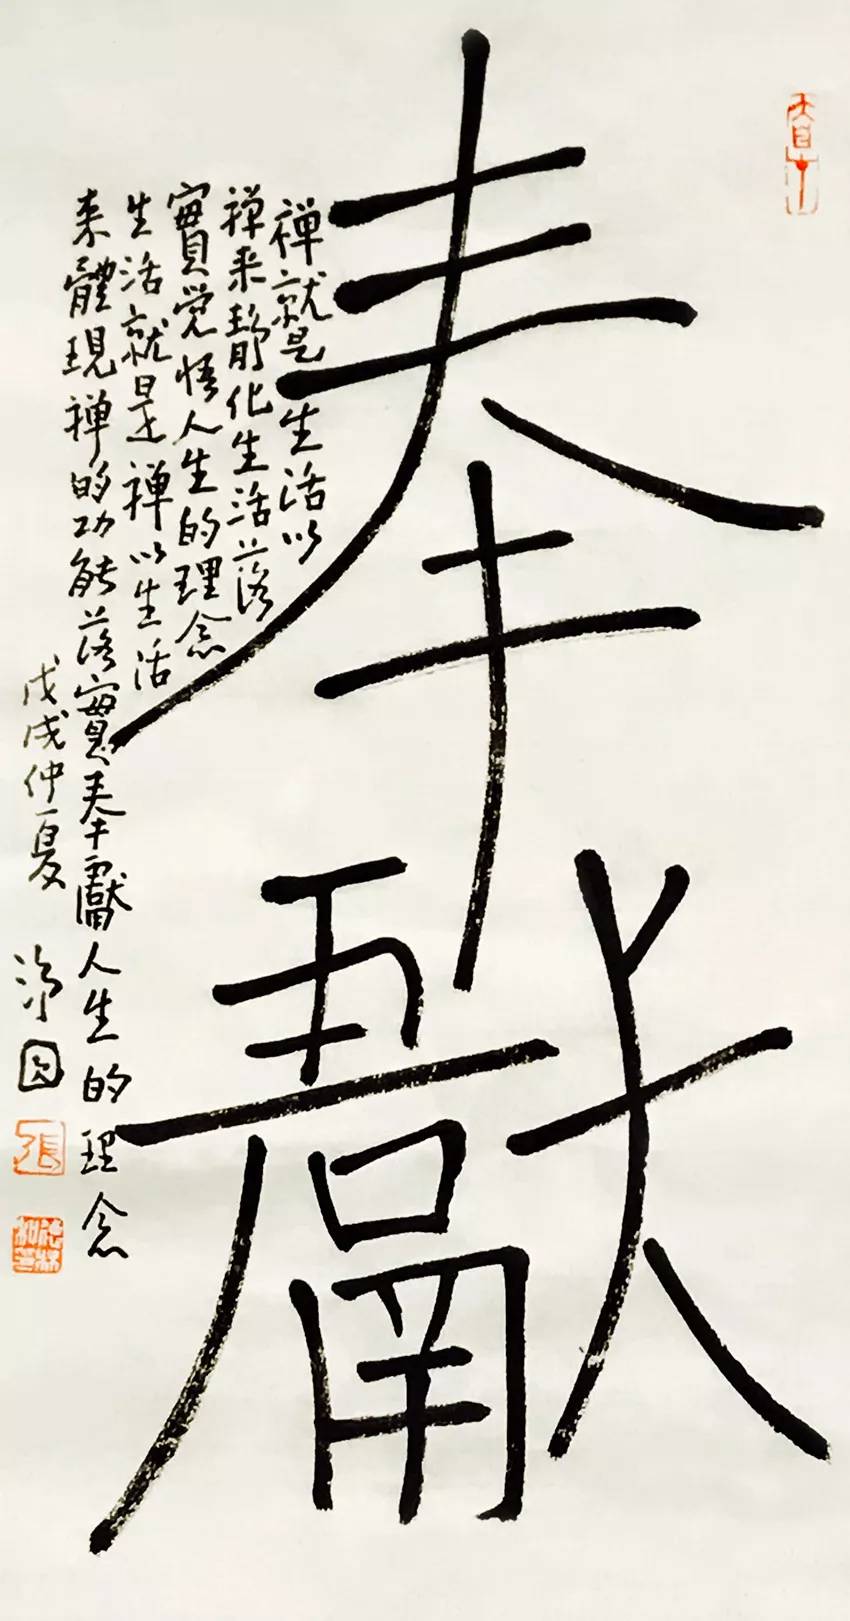 奉獻
禅就是生活以
禅来静化生活落
實覚悟人生的理念
生活就是禅以生活
来體現禅的功能落實奉獻人生的理念
戊戌仲夏
張